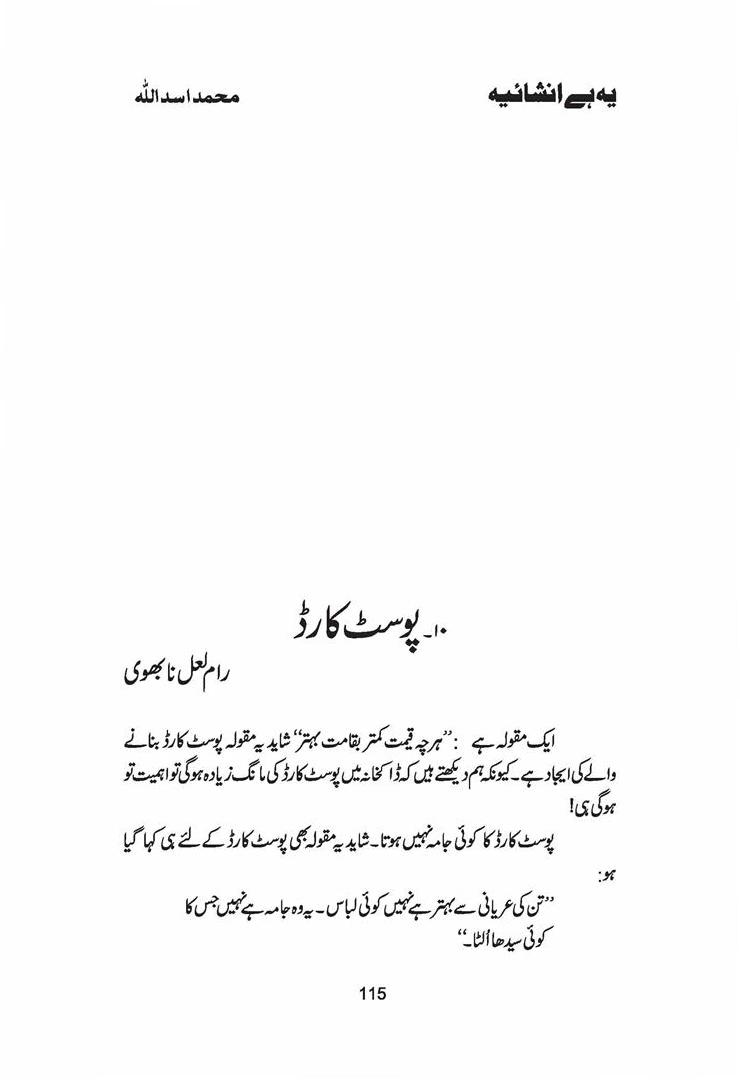 یہ ہے انشائیہ
محمد اسد اللہ
۱۰۔ پوسٹ کارڈ
رام لعل نابھوی
ایک مقولہ ہے : ’’ہرچہ قیمت کمتر بقامت بہتر‘‘ شاید یہ مقولہ پوسٹ کارڈ بنانے
والے کی ایجاد ہے۔ کیونکہ ہم دیکھتے ہیں کہ ڈاکخانہ میں پوسٹ کارڈ کی مانگ زیادہ ہوگی تو اہمیت تو
ہوگی ہی!
پوسٹ کارڈ کا کوئی جامہ نہیں ہوتا۔ شاید یہ مقولہ بھی پوسٹ کارڈ کے لئے ہی کہا گیا
ہو:
’’تن کی عریانی سے بہتر ہے نہیں کوئی لباس۔ یہ وہ جامہ ہے نہیں جس کا
کوئی سیدھا اُلٹا۔‘‘
115